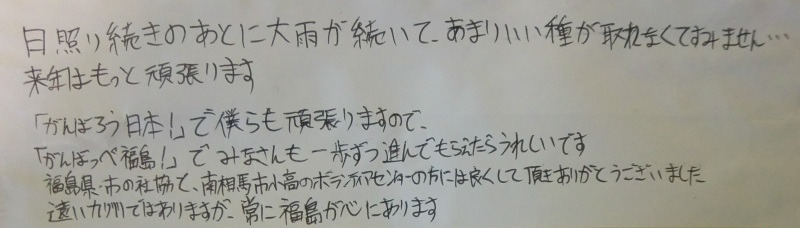 日照り続きのあとに大雨が続いて、あまりいい種が取れなくてすみません…
来年はもっと頑張ります
「がんばろう日本!」で僕らも頑張りますので、
「がんばっぺ福島!」でみなさんも一歩ずつ進んでもらえたらうれしいです
福島県・市の社協で、南相馬市小高のボランティアセンターの方には良くして頂きありがとうございました
遠いカリガリではありますが、常に福島が心にあります